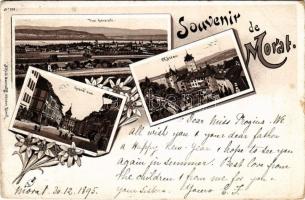 Souvenir
de
Morat.
Vue générale.
Château
Grand'rue
Dear Miss Regina. We
all wish you & your dear father
a Happy New Year & hope to see you
again in summer. Best love from
the children & from me for you &
your sisters. Yours E. S.
Morat. 20.12.1895.